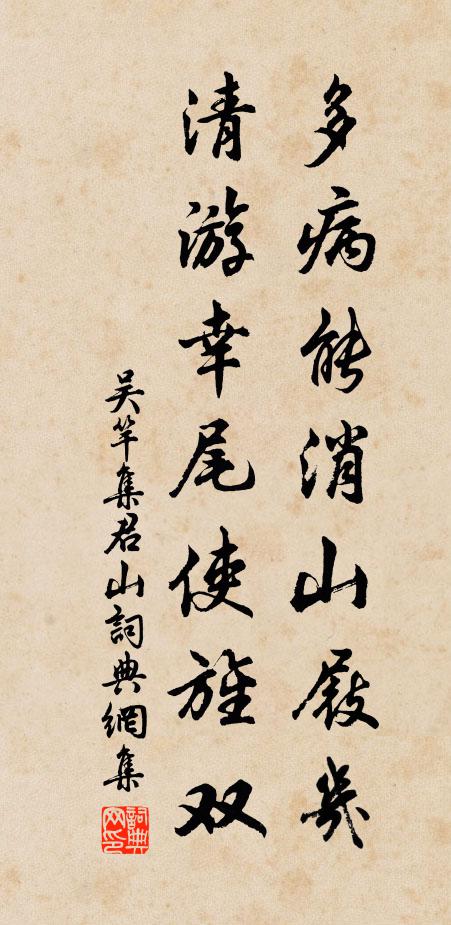 多病能消山屐几
清游幸尾使旌双
吴竿集君山词典網集
詞典网印